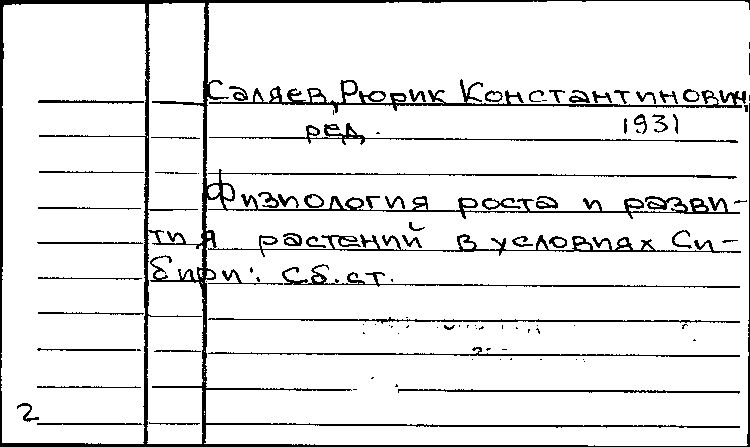 Саляев, Рюрик Константинович,
ред. 1931
Физиология роста и разви-
тия растений в условиях Си-
бири: Сб. ст.
2